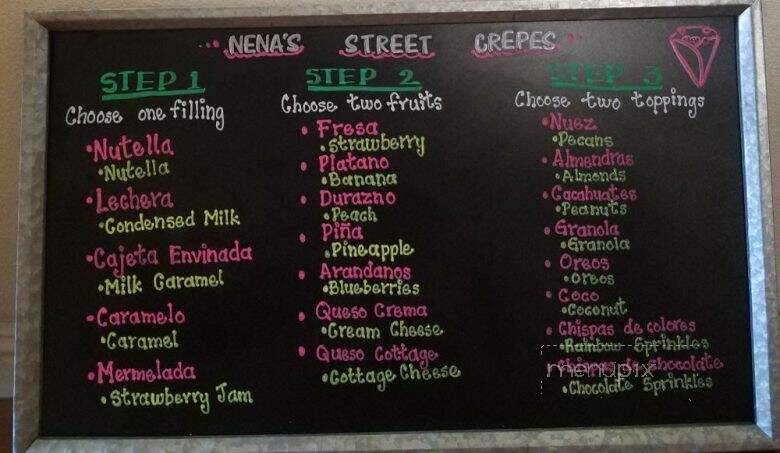 NENA'S STREET CREPES
STEP 1
Choose one filling
•Nutella
•Nutella
•Lechera
•Condensed Milk
•Cajeta Envinada
•Milk Caramel
•Caramelo
•Caramel
•Mermelada
•Strawberry Jam
STEP 2
Choose two fruits
•Fresa
•Strawberry
•Platano
•Banana
•Durazno
•Peach
•Piña
•Pineapple
•Arandanos
•Blueberries
•Queso Crema
•Cream Cheese
•Queso Cottage
•Cottage Cheese
STEP 3
Choose two toppings
•Nuez
•Pecans
•Almendras
•Almonds
•Cacahuates
•Peanuts
•Granola
•Granola
•Oreos
•Oreos
•Coco
•Coconut
•Chispas de colores
•Rainbow Sprinkles
•Chispas de chocolate
•Chocolate Sprinkles
menupix